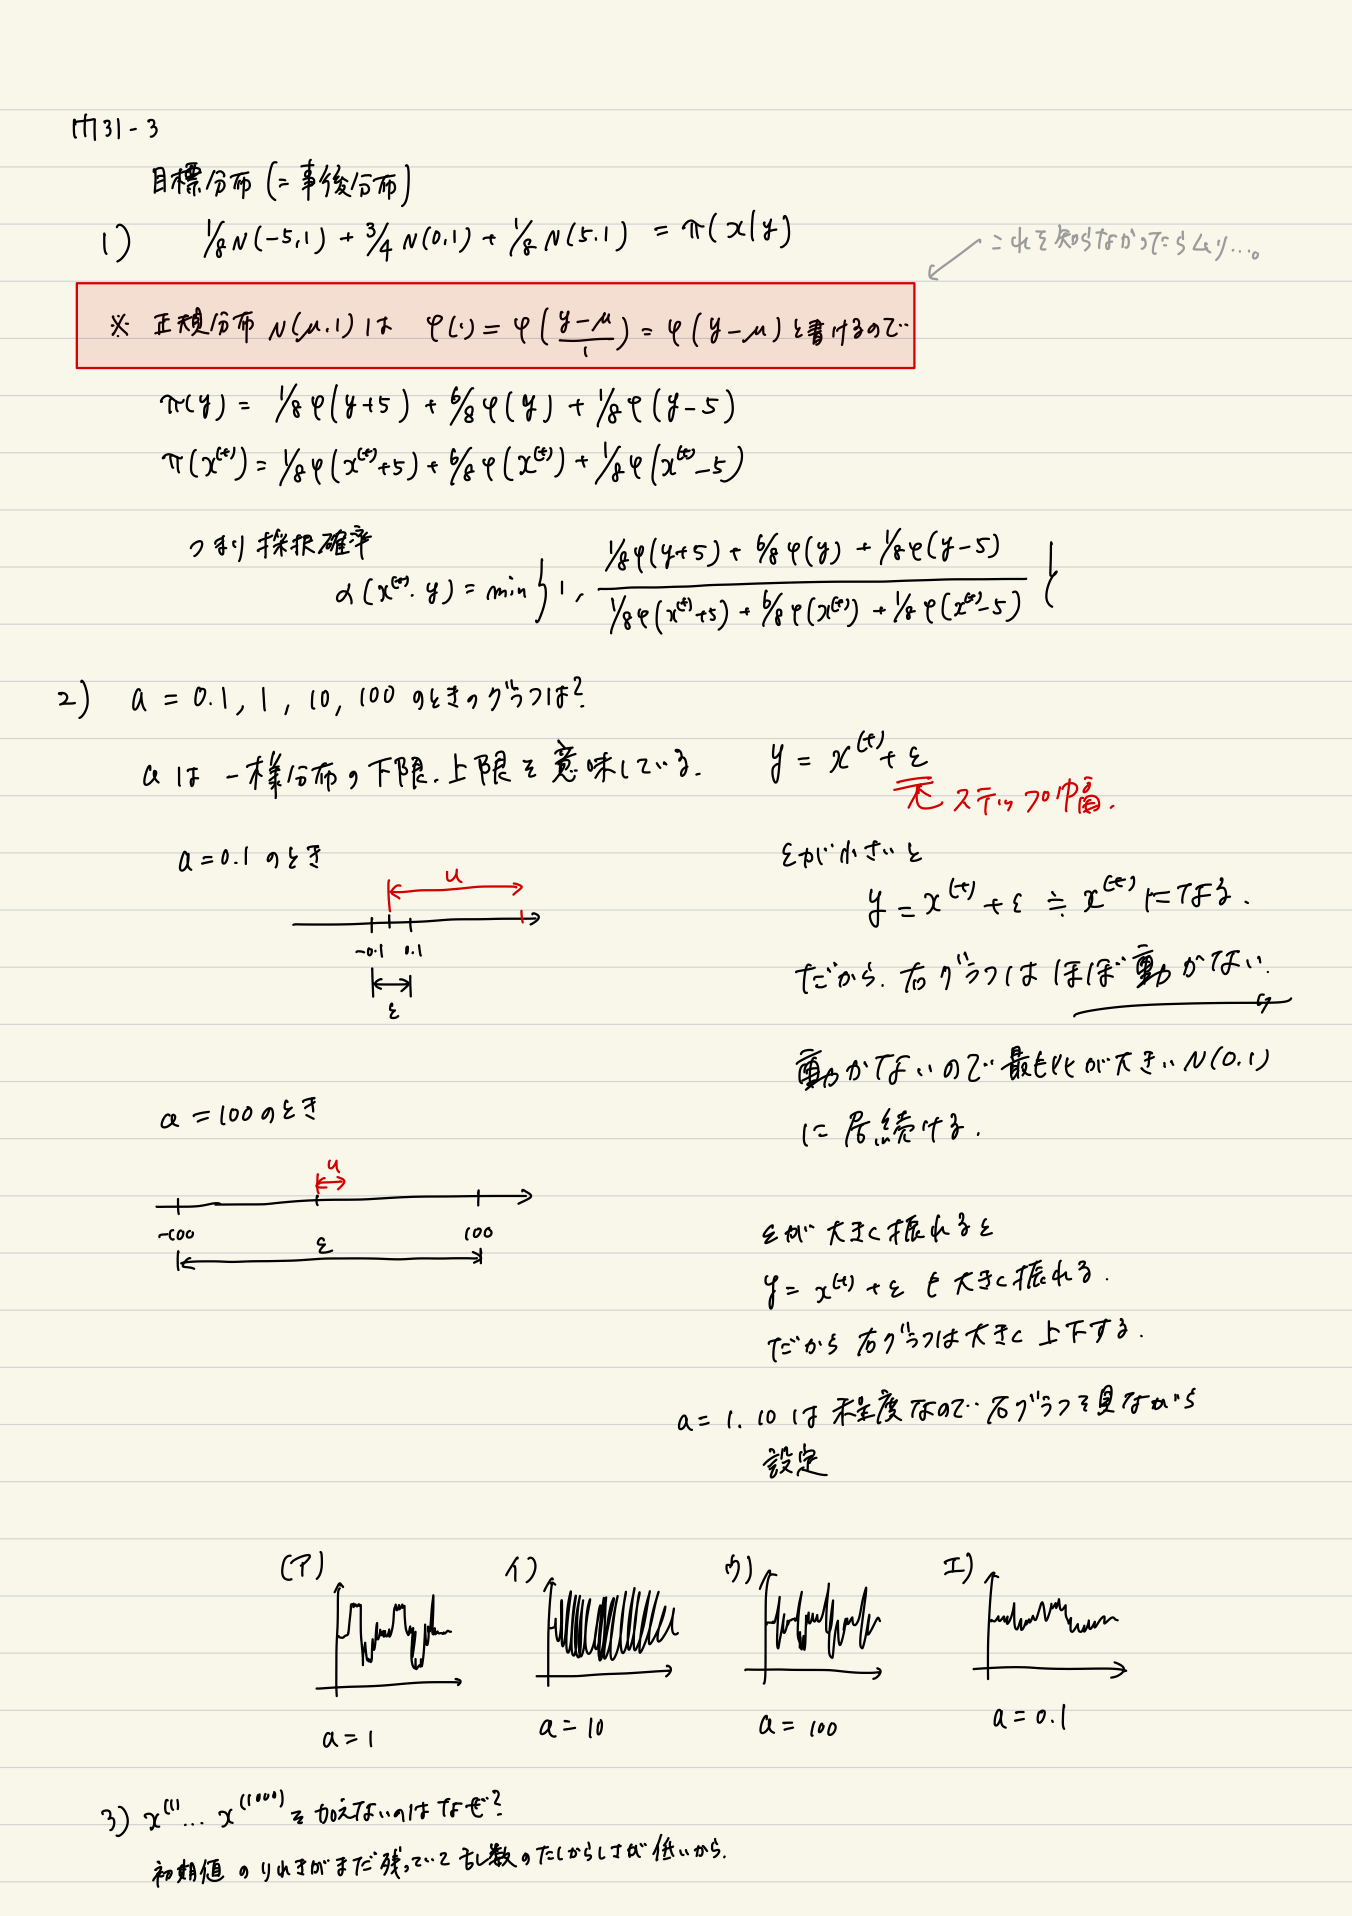 問31-3
目標分布 (=事後分布)
1) 1/8 N(-5,1) + 3/4 N(0,1) + 1/8 N(5,1) = π(x|y)
これを知らなかったらムリ…。
※ 正規分布 N(μ,1)は φ(・) = φ((y-μ)/1) = φ(y-μ)と書けるので
π(y) = 1/8 φ(y+5) + 6/8 φ(y) + 1/8 φ(y-5)
π(x^(t)) = 1/8 φ(x^(t)+5) + 6/8 φ(x^(t)) + 1/8 φ(x^(t)-5)
つまり採択確率
α(x^(t), y) = min { 1, (1/8 φ(y+5) + 6/8 φ(y) + 1/8 φ(y-5)) / (1/8 φ(x^(t)+5) + 6/8 φ(x^(t)) + 1/8 φ(x^(t)-5)) }
2) a = 0.1, 1, 10, 100 のときのグラフは?
aは一様分布の下限、上限を意味している.
y = x^(t) + ε
ステップ幅.
a=0.1 のとき
u
-0.1 0.1
ε
εが小さいと
y = x^(t) + ε ≒ x^(t) になる.
だから、右グラフはほぼ動かない.
動かないので最も比が大きいN(0,1)
に居続ける.
a = 100のとき
u
-100 ε 100
εが大きく振れると
y = x^(t) + ε も大きく振れる.
だから右グラフは大きく上下する.
a = 1, 10 は程度なので右グラフを見ながら
設定
(ア) イ) ウ) エ)
a = 1 a = 10 a = 100 a = 0.1
3) x^(1)... x^(1000) を加えないのはなぜ?
初期値のりれきがまだ残っていて乱数のたしからしさが低いから.